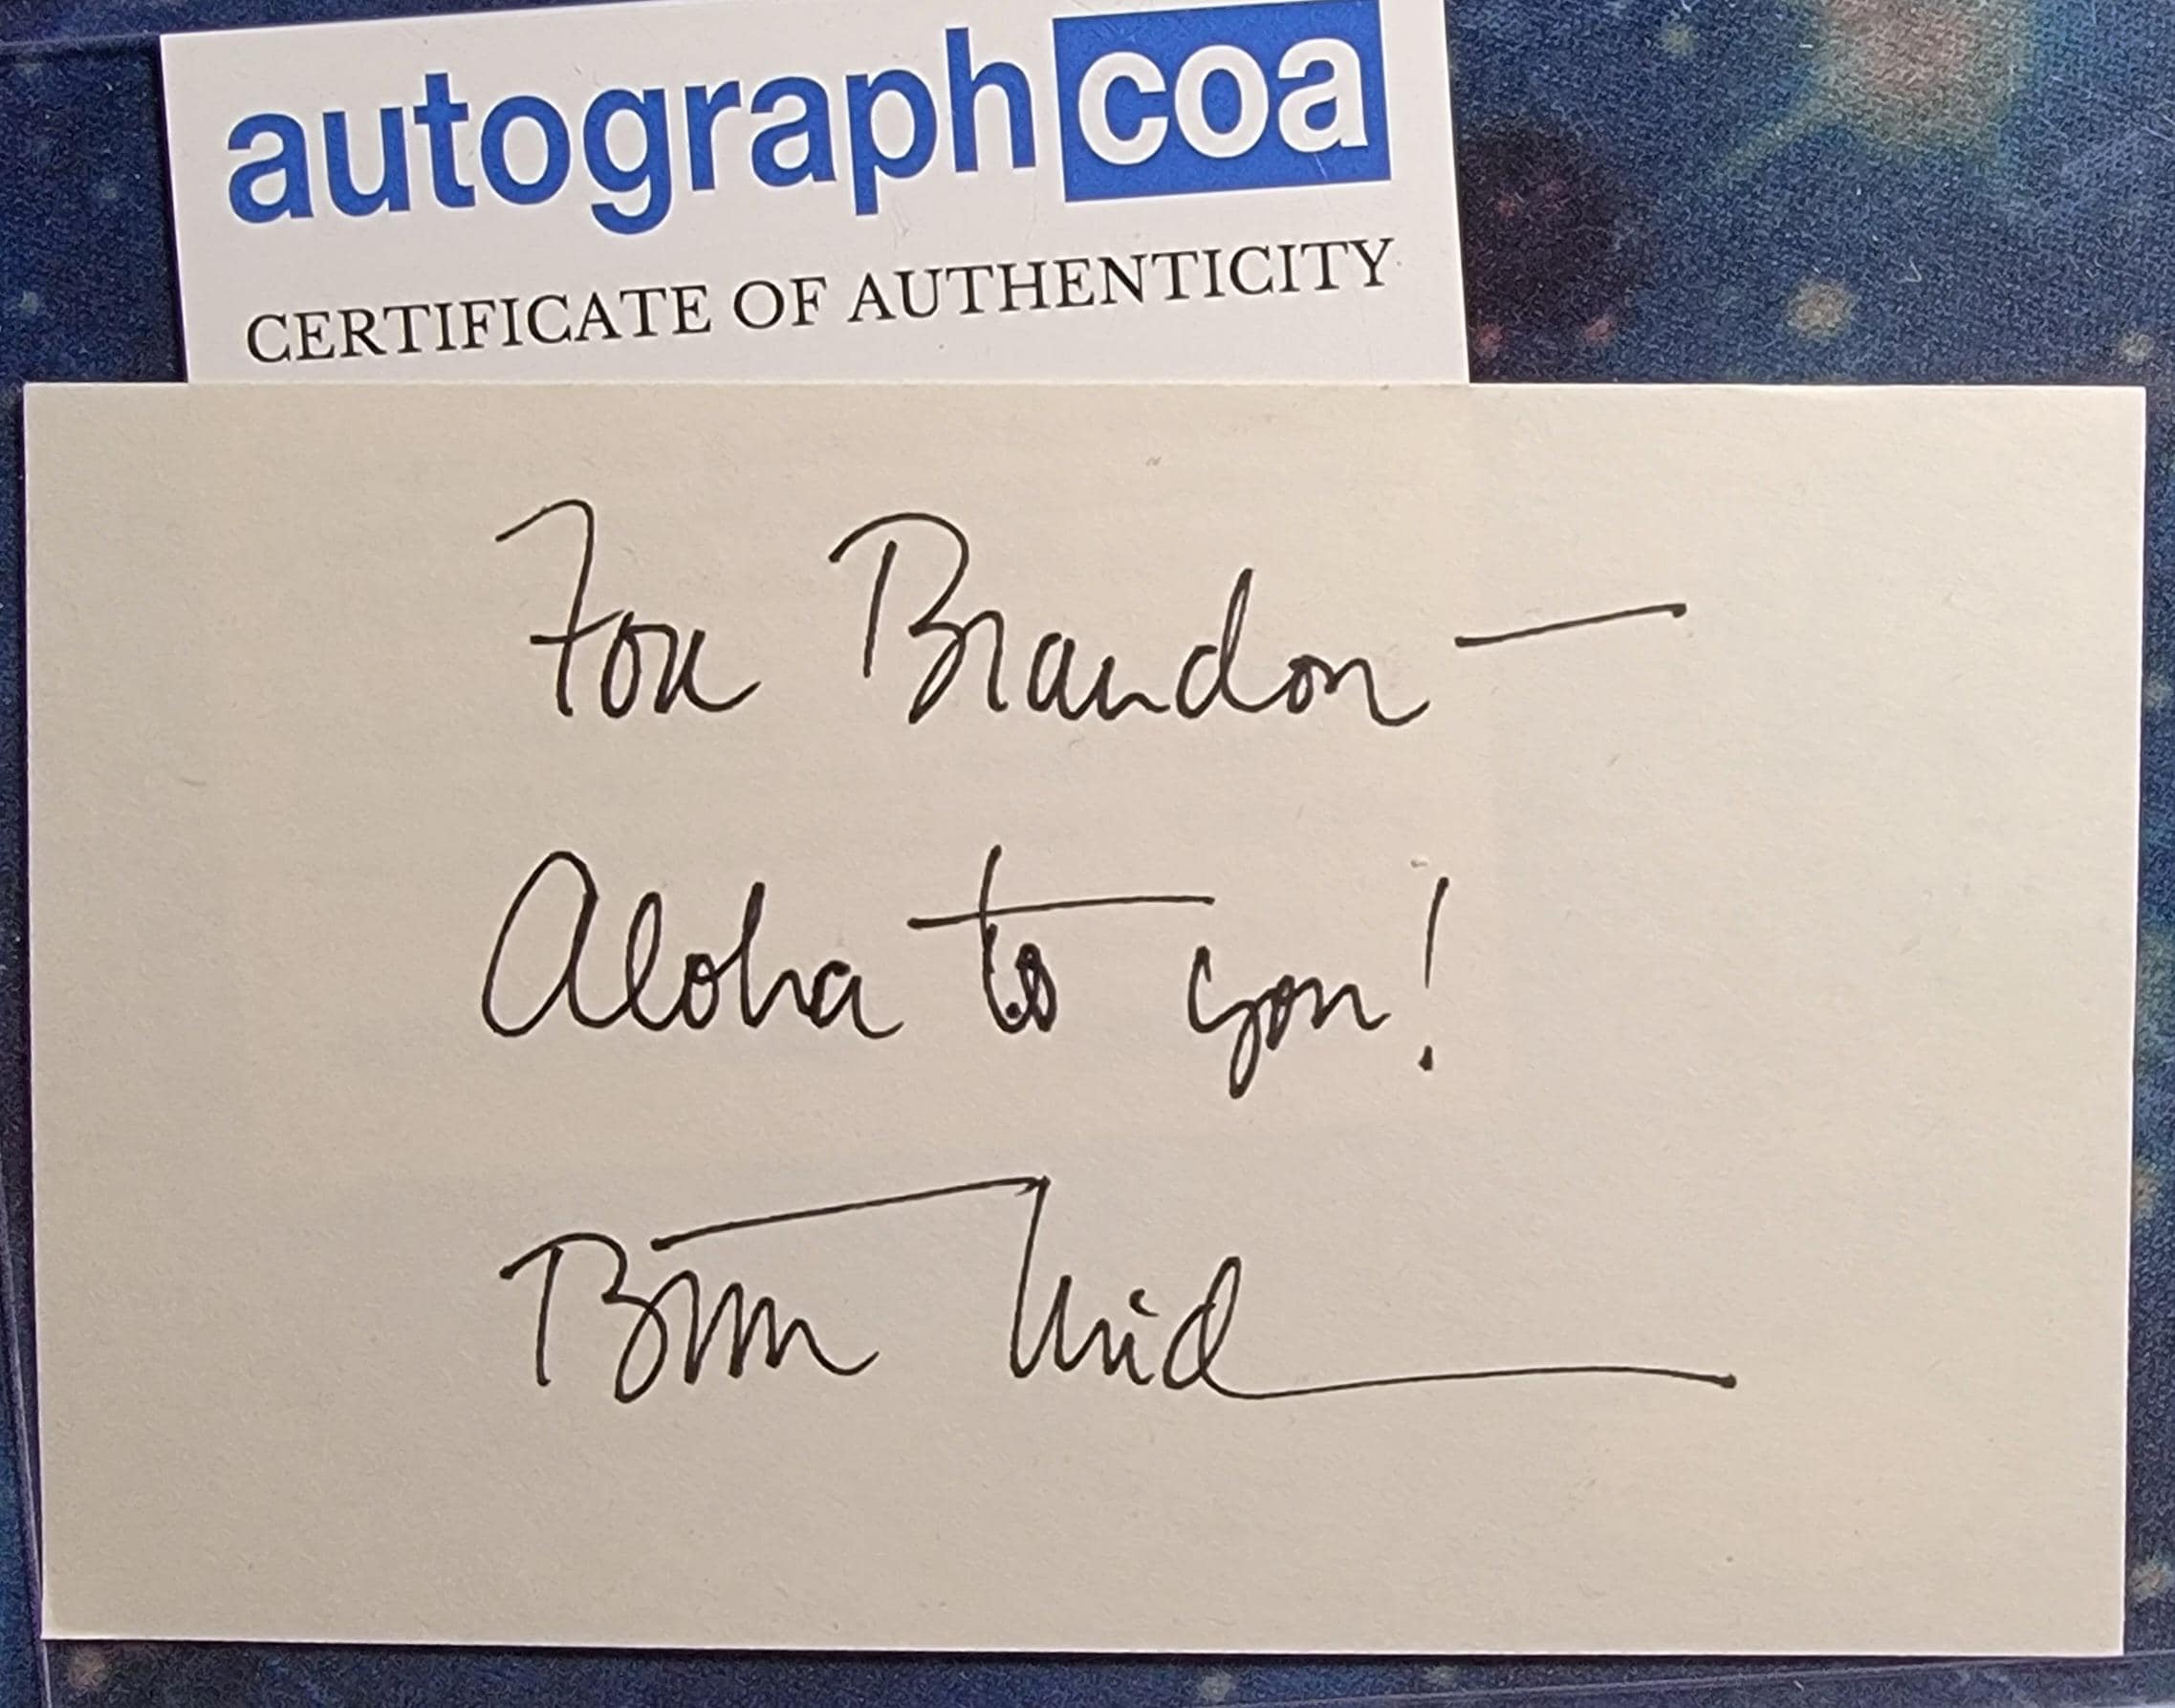 autographcoa
CERTIFICATE OF AUTHENTICITY
For Brandon —
Aloha to you!